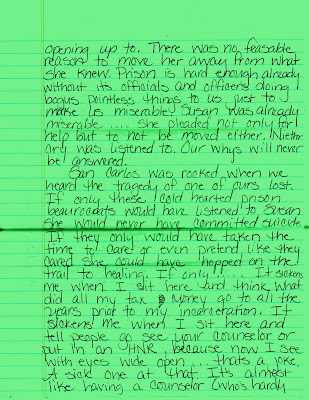 opening up to. There was no feasable
reason to move her away from what
she knew. Prison is hard enough already
without its officials and officers doing
bogus pointless things to us just to
make us miserable. Susan was already
miserable .... She pleaded not only for
help but to not be moved either. Niether
cry was listened to. Our whys will never
be answered.
San Carlos was rocked when we
heard the tragedy of one of ours lost.
If only these cold hearted prison
beaurocrats would have listened to Susan
she would never have committed suicide.
If they only would have taken the
time to care or even pretend like they
cared she could have hopped on the
trail to healing. If only!.... It sickens
me when I sit here and think what
did all my tax money go to all the
years prior to my incarceration. It
sickens me when I sit here and
tell people go see your counselor or
put in an because now I see
with eyes wide open ... thats a joke.
A sick one at that. Its almost
like having a counselor (who's hardy